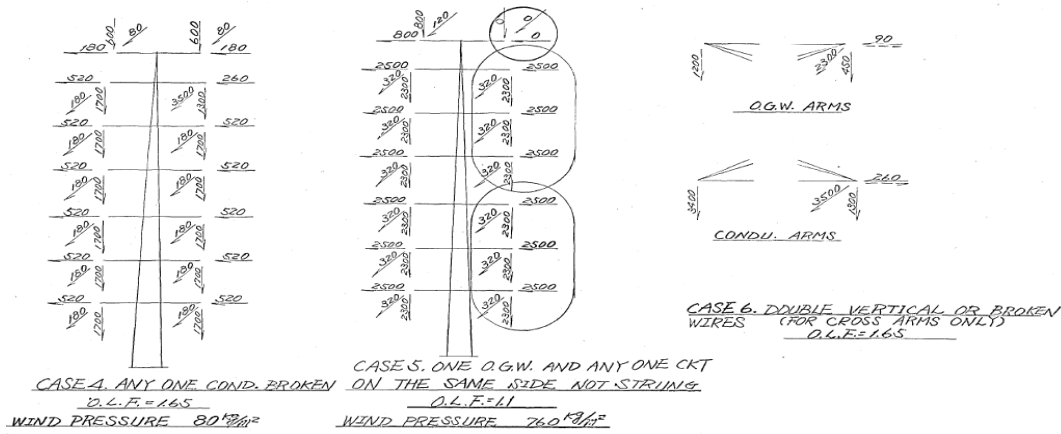 600 80 600 80
180 180
520 260
180 1700 3500 1300
520 520
180 1700 180 1700
520 520
180 1700 180 1700
520 520
180 1700 180 1700
520 520
180 1700 180 1700
520 520
180 1700 180 1700
CASE 4. ANY ONE COND. BROKEN
O.L.F.=1.65
WIND PRESSURE 80 kg/m²
800 120 0 0
800 0
2500 2500
320 2300 320 2300
2500 2500
320 2300 320 2300
2500 2500
320 2300 320 2300
2500 2500
320 2300 320 2300
2500 2500
320 2300 320 2300
2500 2500
320 2300 320 2300
CASE 5. ONE O.G.W. AND ANY ONE CKT
ON THE SAME SIDE NOT STRUNG
O.L.F.=1.1
WIND PRESSURE 760 kg/m²
90
1200 2300 450
O.G.W. ARMS
260
3400 3500 1300
CONDU. ARMS
CASE 6. DOUBLE VERTICAL OR BROKEN
WIRES (FOR CROSS ARMS ONLY)
O.L.F.=1.65